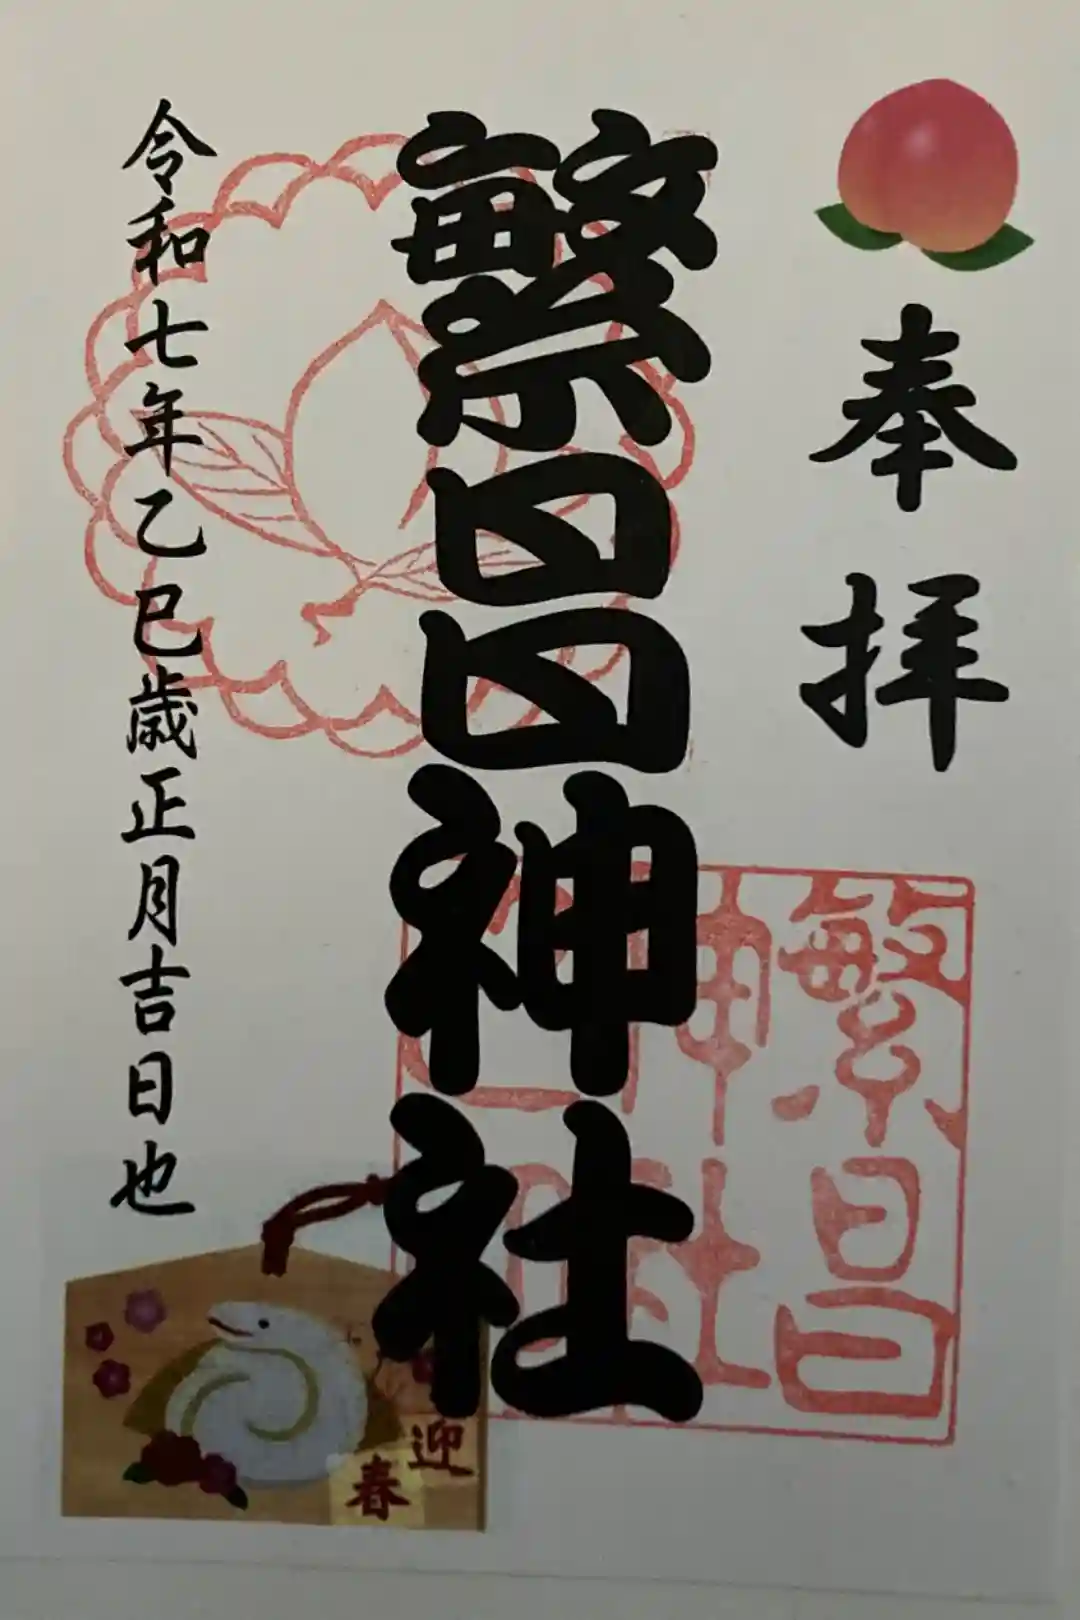 奉拝
繁昌神社
令和七年乙巳歳正月吉日也
繁昌
神社
迎春